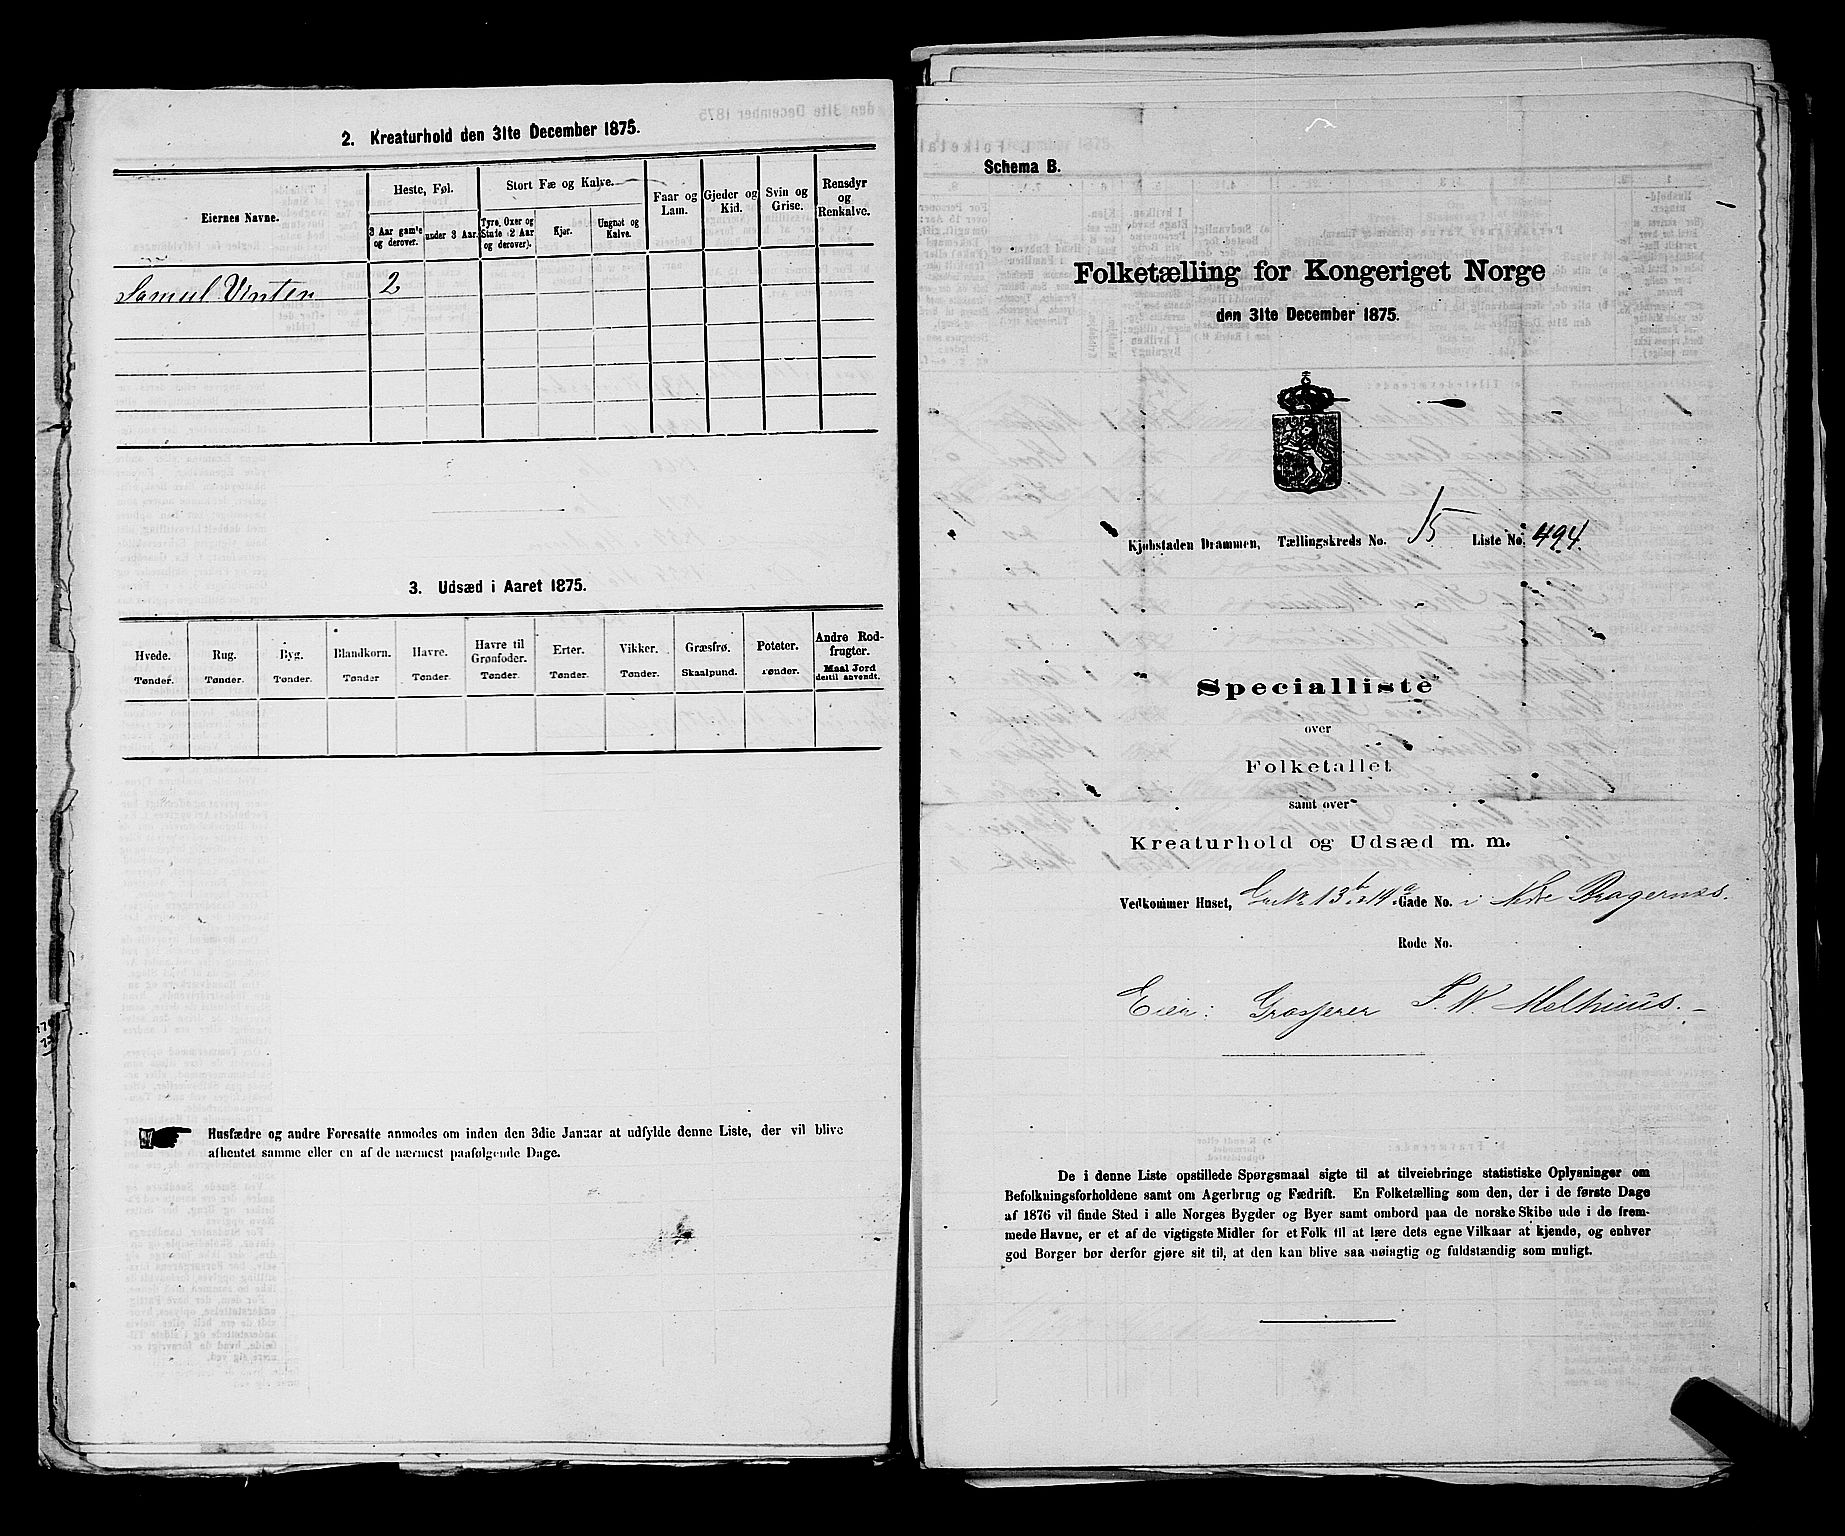 2. Kreaturhold den 31te December 1875.
Eiernes Navne.
Heste, Føl.
3 Aar gamle og derover.
under 3 Aar.
Stort Fæ og Kalve.
Tyre, Oxer og Stute (2 Aar og derover).
Kjør.
Ungnøt og Kalve.
Faar og Lam.
Gjeder og Kid.
Svin og Grise.
Rensdyr og Renkalve.
Samuel Vinten 2
3. Udsæd i Aaret 1875.
Hvede. Rug. Byg. Blandkorn. Havre. Havre til Grønfoder. Erter. Vikker. Græsfrø. Poteter. Andre Rodfrugter.
Tønder. Tønder. Tønder. Tønder Tønder. Tønder. Tønder. Tønder. Skaalpund. Tønder. Maal Jord dertil anvendt.
Husfædre og andre Foresatte anmodes om inden den 3die Januar at udfylde denne Liste, der vil blive
afhentet samme eller en af de nærmest paafølgende Dage.
Schema B.
Folketælling for Kongeriget Norge
den 31te December 1875.
Kjøbstaden Drammen, Tællingskreds No. 15 Liste No. 494.
Specialliste
over
Folketallet
samt over
Kreaturhold og Udsæd m. m.
Vedkommer Huset, 13b 14a Gade No. i Ndre Bragernæs.
Rode No.
Eier: Grosserer F. W. Melhuus.
De i denne Liste opstillede Spørgsmaal sigte til at tilveiebringe statistiske Oplysninger om
Befolkningsforholdene samt om Agerbrug og Fædrift. En Folketælling som den, der i de første Dage
af 1876 vil finde Sted i alle Norges Bygder og Byer samt ombord paa de norske Skibe ude i de frem-
mede Havne, er et af de vigtigste Midler for et Folk til at lære dets egne Vilkaar at kjende, og enhver
god Borger bør derfor gjøre sit til, at den kan blive saa nøiagtig og fuldstændig som muligt.